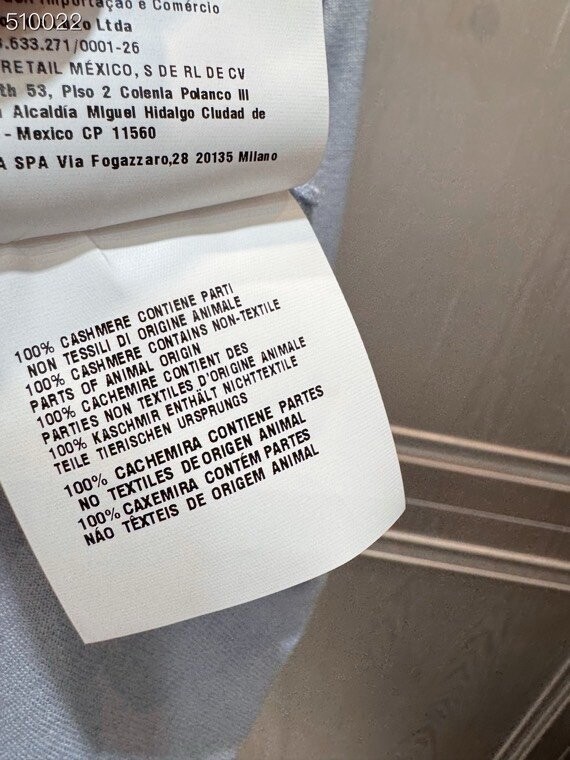 Importação e Comércio
510022
Ltda
.633.271/0001-26
RETAIL MÉXICO, S DE RL DE CV
th 53, Piso 2 Colenia Polanco III
Alcaldía Miguel Hidalgo Ciudad de
- Mexico CP 11560
A SPA Via Fogazzaro,28 20135 Milano
100% CASHMERE CONTIENE PARTI
NON TESSILI DI ORIGINE ANIMALE
100% CASHMERE CONTAINS NON-TEXTILE
PARTS OF ANIMAL ORIGIN
100% CACHEMIRE CONTIENT DES
PARTIES NON TEXTILES D'ORIGINE ANIMALE
100% KASCHMIR ENTHÄLT NICHTTEXTILE
TEILE TIERISCHEN URSPRUNGS
100% CACHEMIRA CONTIENE PARTES
NO TEXTILES DE ORIGEN ANIMAL
100% CAXEMIRA CONTÉM PARTES
NÃO TÊXTEIS DE ORIGEM ANIMAL